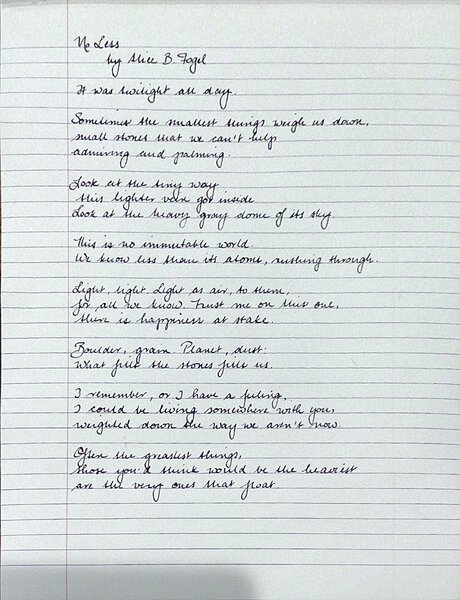 No Less
by Alice B. Fogel
It was twilight all day.
Sometimes the smallest things weigh us down,
small stones that we can't help
admiring and palming.
Look at the tiny way
this lighter vein got inside.
Look at the heavy gray dome of its sky.
This is no immutable world.
We know less than its atoms, rushing through.
Light, light. Light as air, to them,
for all we know. Trust me on this one,
there is happiness at stake.
Boulder, grain. Planet, dust:
What fills the stones fills us.
I remember, or I have a feeling,
I could be living somewhere with you,
weighted down the way we aren't now.
Often the greatest things,
those you'd think would be the heaviest
are the very ones that float.